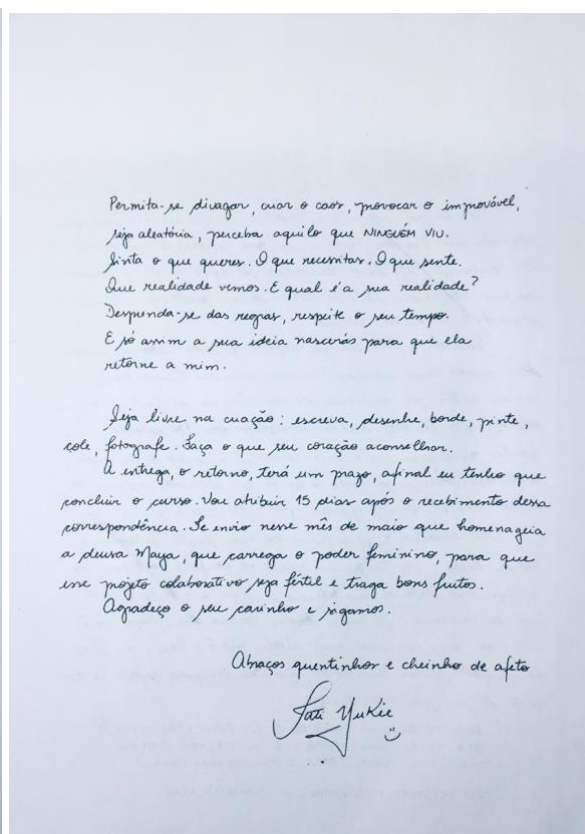 Permita-se divagar, criar o caos, provocar o improvável,
seja aleatória, perceba aquilo que NINGUÉM VIU.
Sinta o que queres. O que necessitas. O que sente.
Que realidade vemos. E qual é a sua realidade?
Desprenda-se das regras, respeite o seu tempo.
E só assim a sua ideia nascerás para que ela
retorne a mim.
Seja livre na criação: escreva, desenhe, borde, pinte,
cole, fotografe. Faça o que seu coração aconselhar.
A entrega, o retorno, terá um prazo, afinal eu tenho que
concluir o curso. Vou atribuir 15 dias após o recebimento dessa
correspondência. Te envio nesse mês de maio que homenageia
a deusa Maya, que carrega o poder feminino, para que
esse projeto colaborativo seja fértil e traga bons frutos.
Agradeço o seu carinho e sigamos.
Abraços quentinhos e cheinho de afeto
Yukie